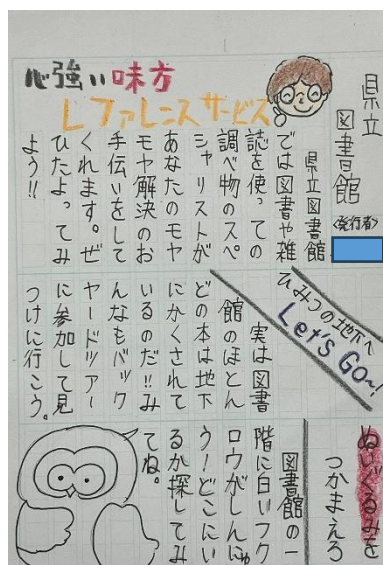 県立
図書館
〈発行者〉
心強い味方
レファレンスサービス
県立図書館
では図書や雑
誌を使っての
調べ物のスペ
シャリストが
あなたのモヤ
モヤ解決のお
手伝いをして
くれます。ぜ
ひたよってみ
よう!!
ひみつの地下へ
Let's GO~!
実は図書
館のほとん
どの本は地下
にかくされて
いるのだ!!み
んなもバック
ヤードツアー
に参加して見
つけに行こう。
ぬいぐるみを
つかまえろ
図書館の一
階に白いフク
ロウがしんにゅ
う!どこにい
るか探してみ
てね。